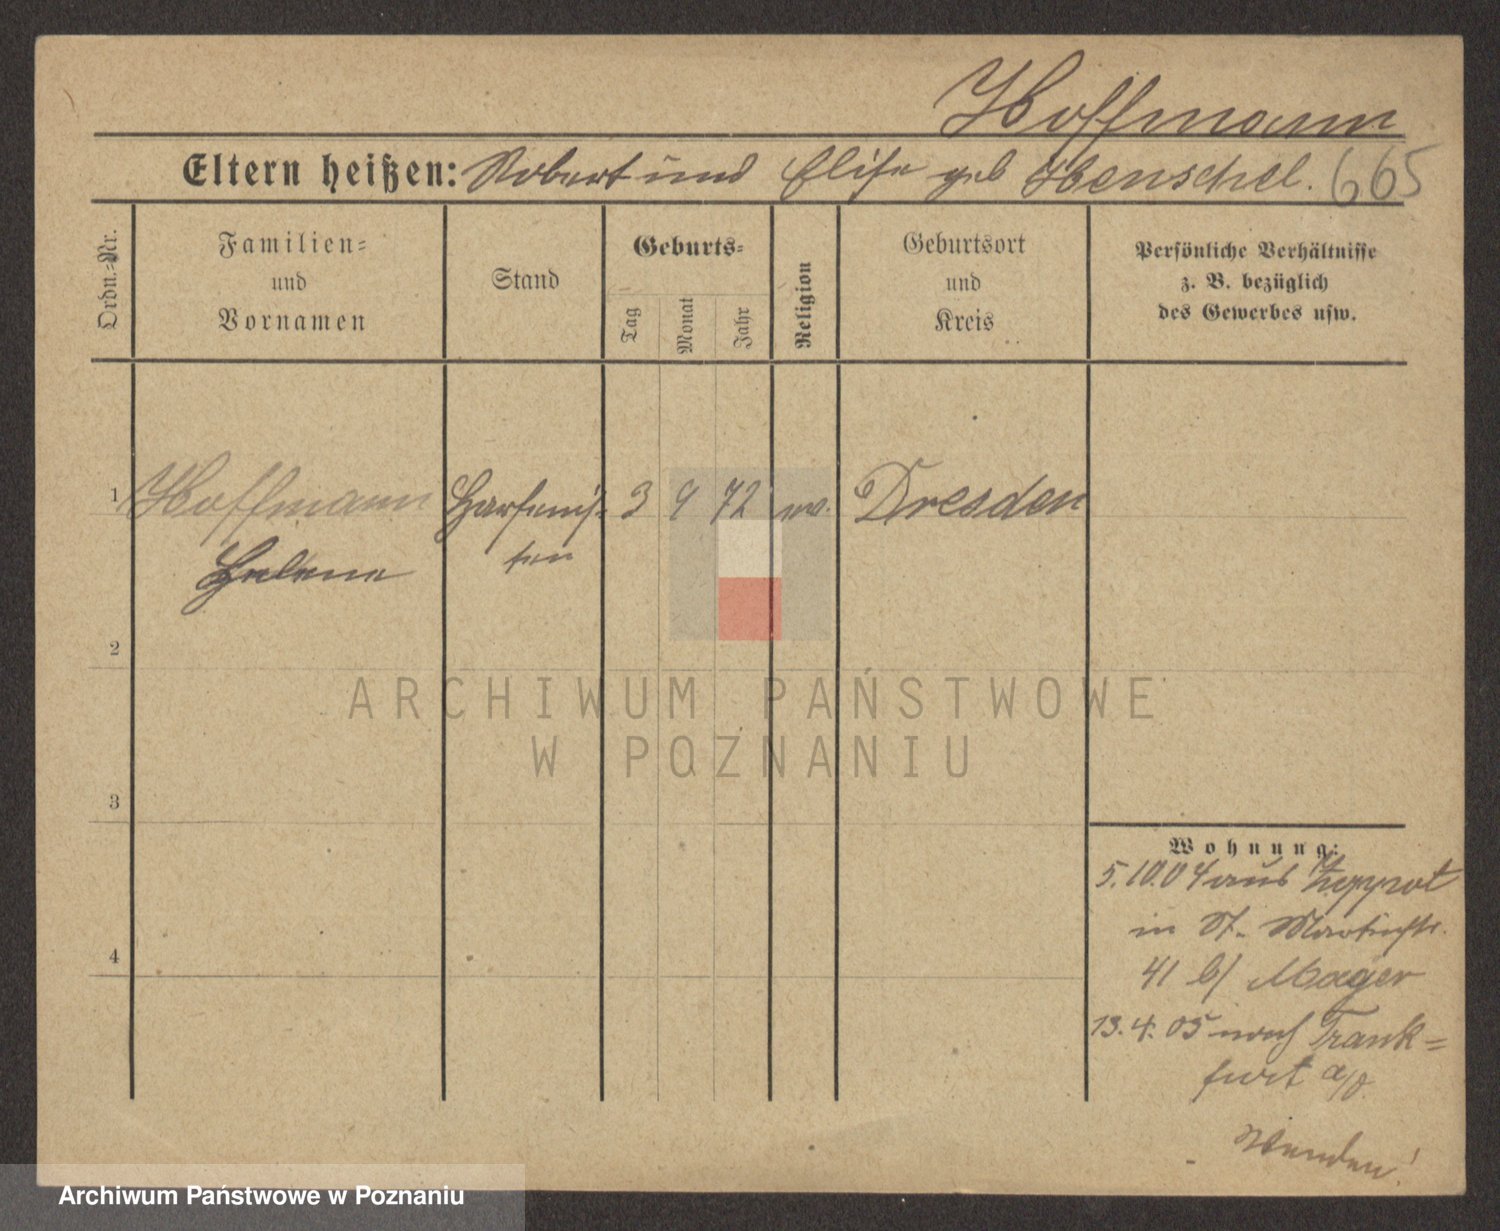 Hoffmann
Eltern heißen: Robert und Elise geb Henschel. 665
Ordn.-Nr.
Familien-
und
Vornamen
Stand
Geburts-
Tag
Monat
Jahr
Religion
Geburtsort
und
Kreis
Persönliche Verhältnisse
z. B. bezüglich
des Gewerbes usw.
1 Hoffmann Harfenis- 3 9 72 ev. Dresden
Helene ten
2
3
4
Wohnung:
5.10.04 aus Zoppot
in St. Martinstr.
41 b/ Mager
13.4.05 nach Frank=
furt a/O.
Wenden!
ARCHIWUM PAŃSTWOWE
W POZNANIU
Archiwum Państwowe w Poznaniu